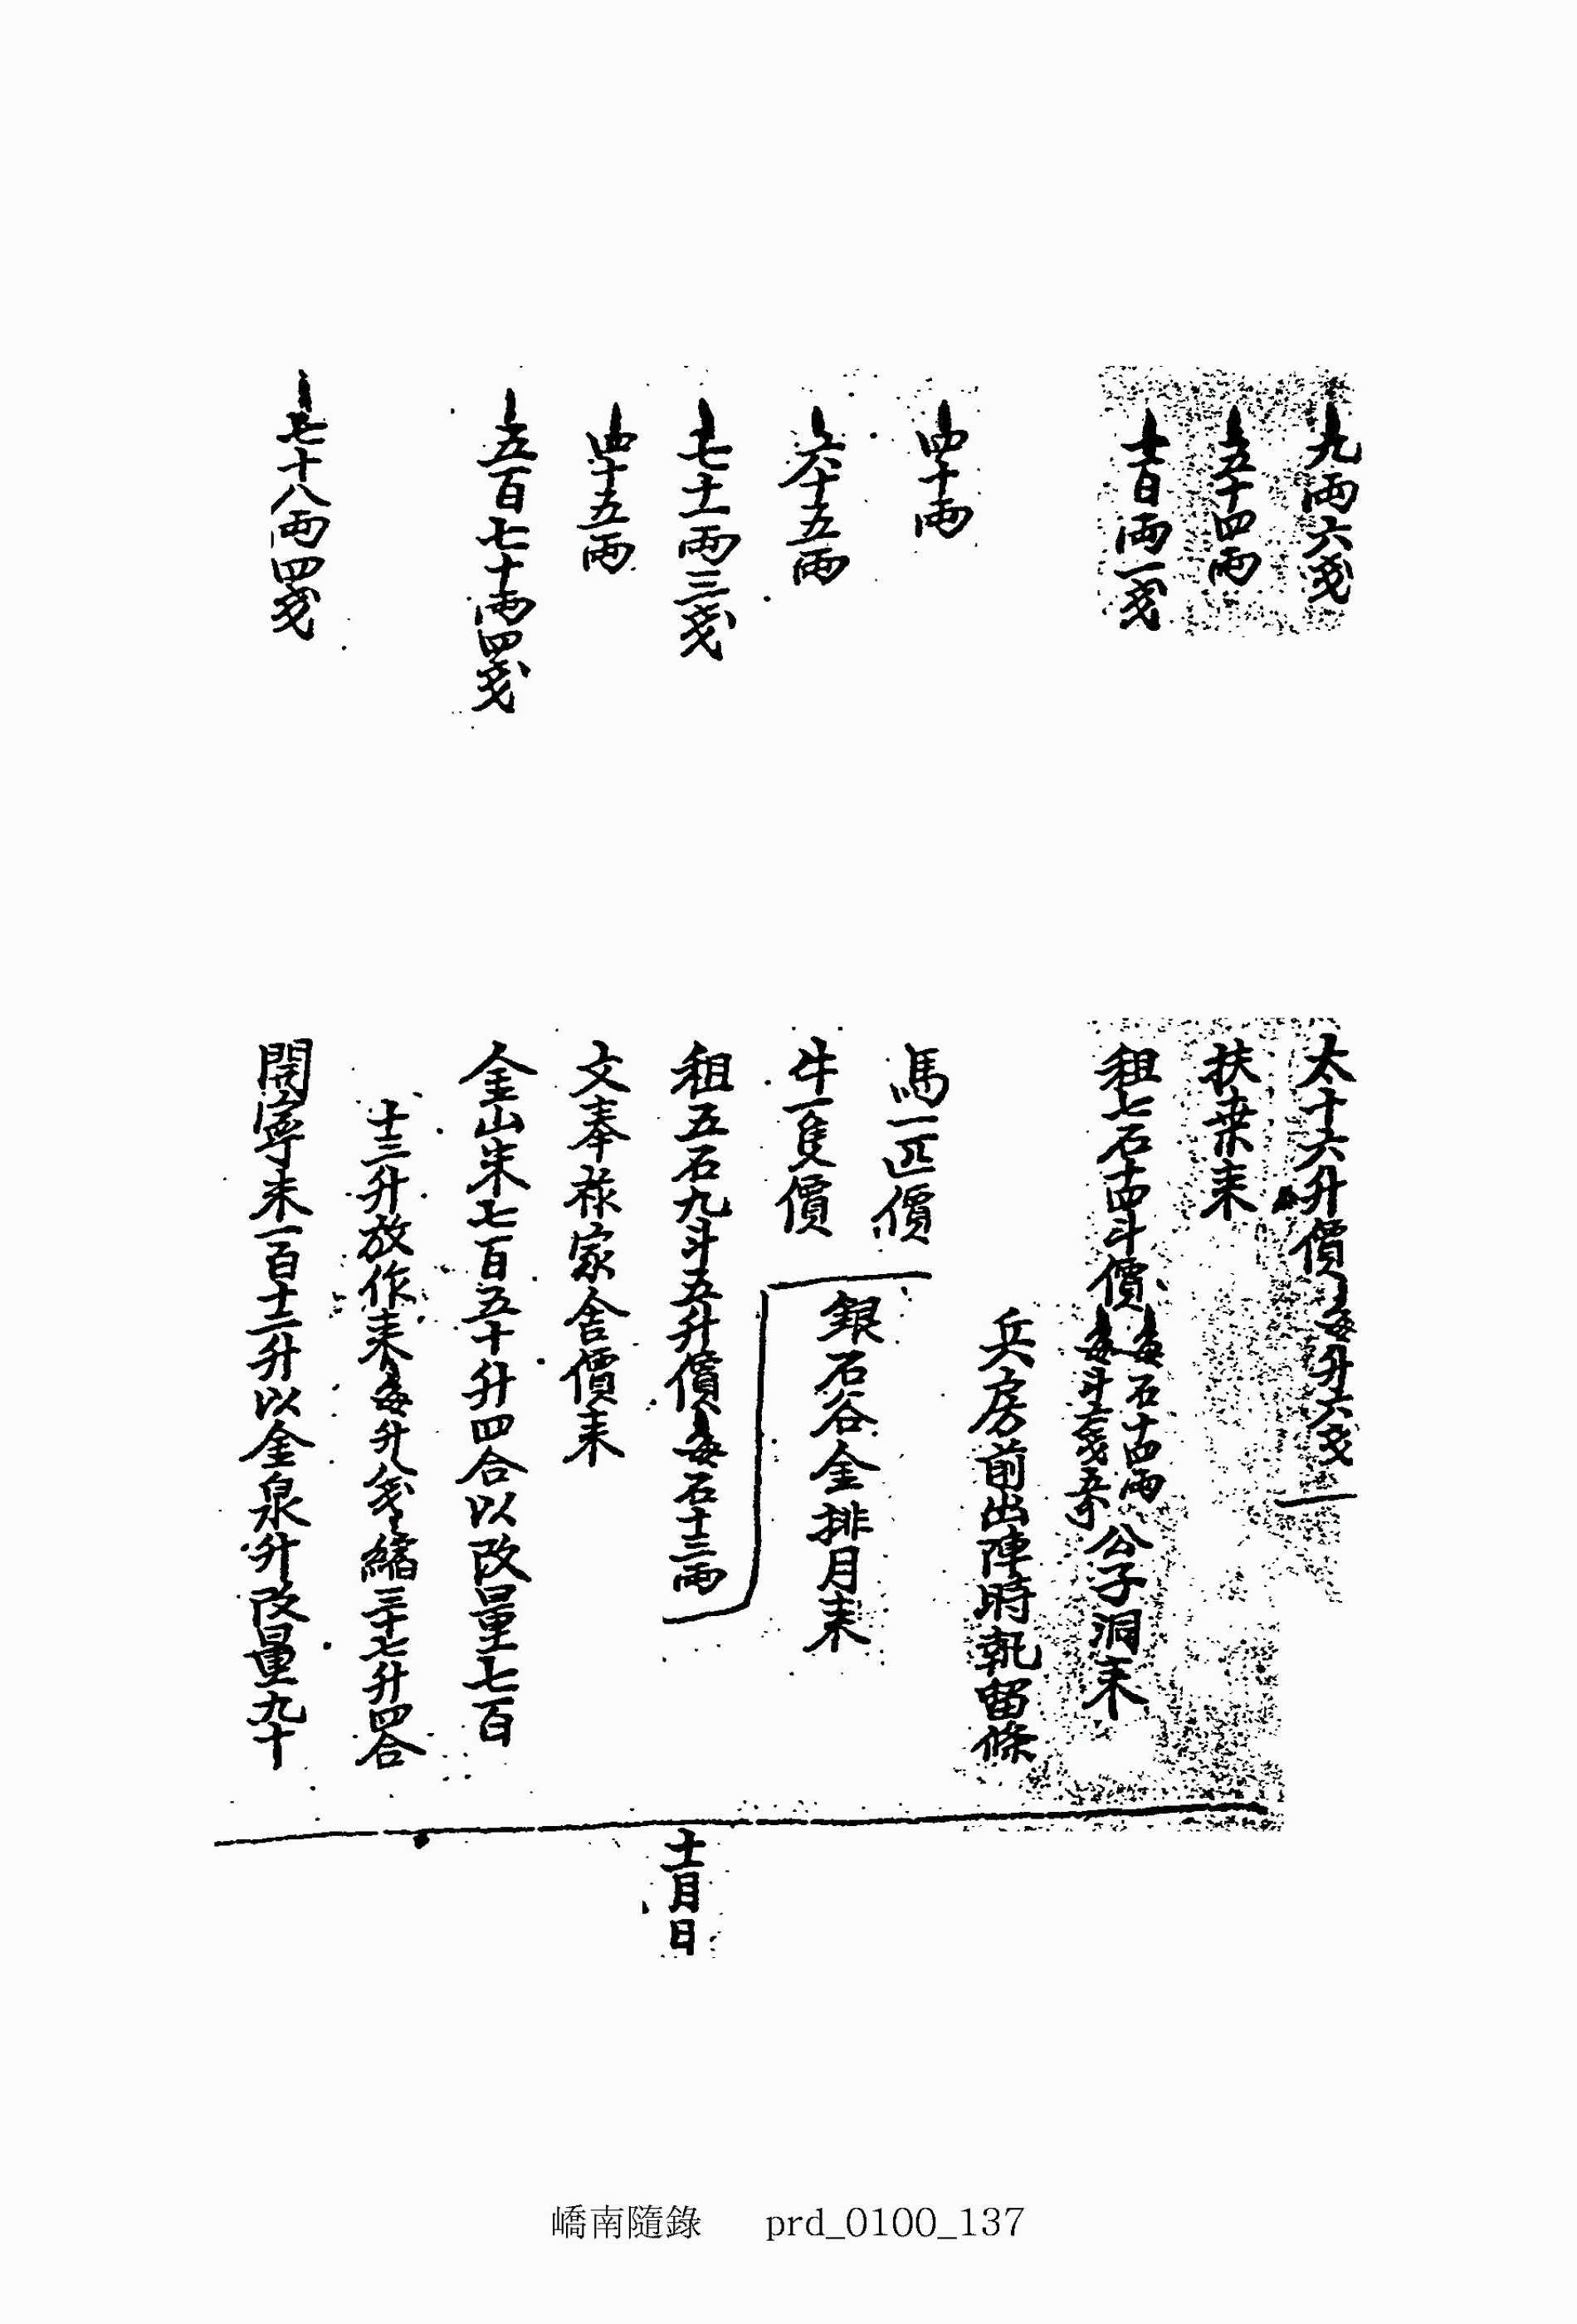 九兩六戔
太十六升價每升六戔
五十四兩
扶桒来
百兩一戔
租七石十四斗價
每石十四兩
每斗
公子洞来
兵房前出陣時執留條
四十兩
馬一匹價
六十五兩
牛一隻價
銀石谷金排月来
七十一兩三戔
租五石九斗五升價每石十三兩
四十五兩
文奉祿家舍價来
五百七十兩四戔
金山米七百五十升四合以改量七百
十三升放作来每升八戔縮三十七升四合
七十八兩四戔
開寧来一百十二升以金泉升改量九十
十一月日
嶠南隨錄 prd_0100_137